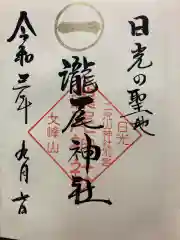 日光の聖地
瀧尾神社
女峰山
二荒山神社別宮
日光
令和二年
九月